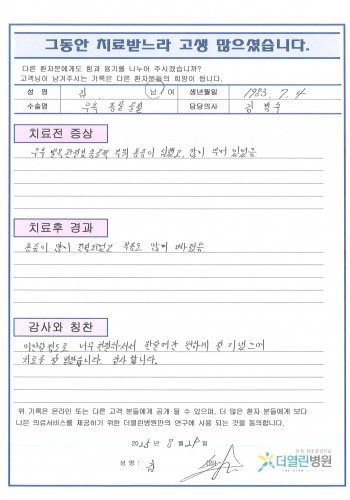 그동안 치료받느라 고생 많으셨습니다.
다른 환자분에게도 힘과 용기를 나누어 주시겠습니까?
고객님이 남겨주시는 기록은 다른 환자분들의 희망이 됩니다.
성 명 김 남 여 생년월일 1983. 7. 4
수술명 우측 골절 담당의사 김 병수
치료전 증상
우측 통증이 심했고, 많이 부어 있었음
치료후 경과
통증이 많이 완화되었고 붓기도 많이 빠졌음
감사와 칭찬
너무 친절하셔서 한달여간 편하게 잘 지냈으며
치료를 잘 받았습니다. 감사합니다.
위 기록은 온라인 또는 다른 고객 분들에게 공개 될 수 있으며, 더 많은 환자 분들에게 보다
나은 의료서비스를 제공하기 위한 더열린병원만의 연구에 사용 되는 것을 동의합니다.
2025년 8월 21일
성 명 : 김
더열린병원